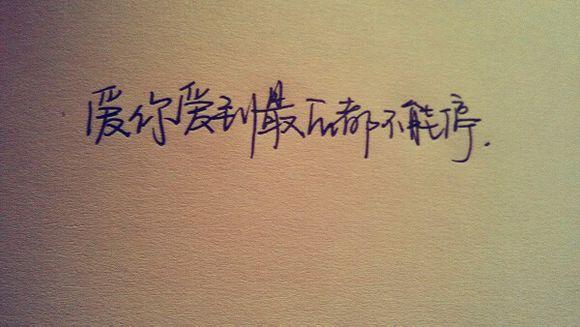 爱你爱到最后都不能停.